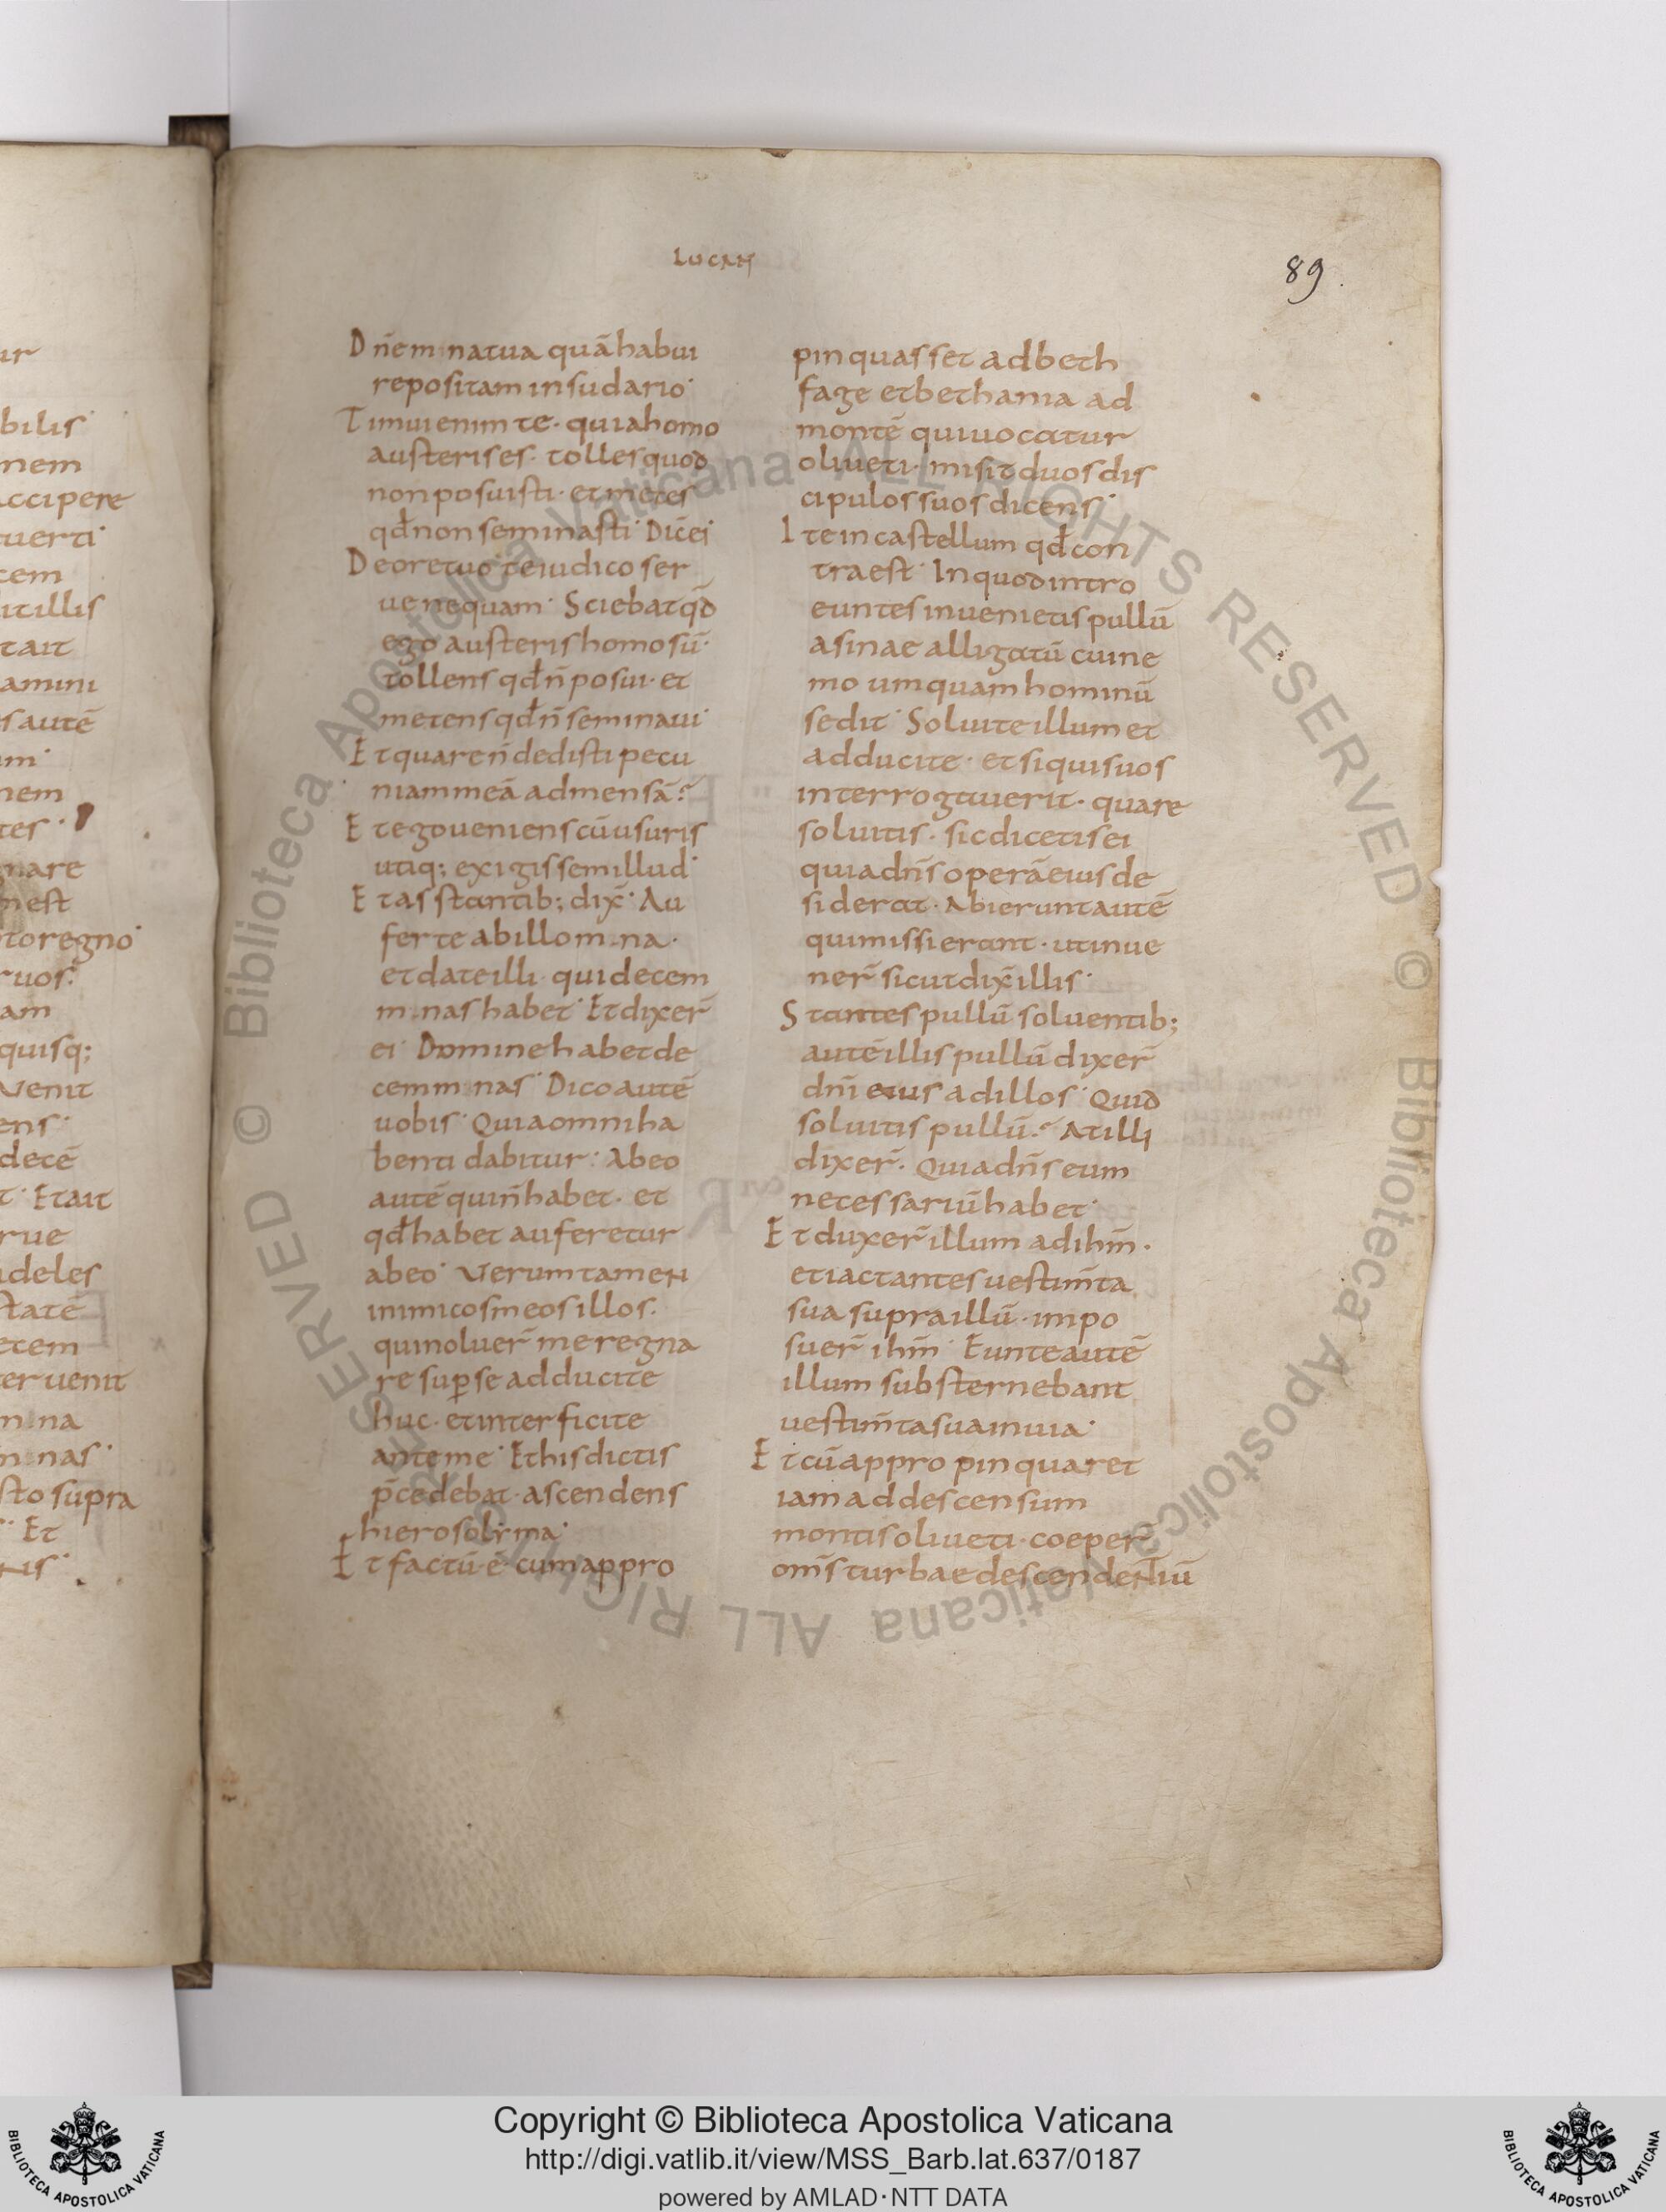 LUCAN
89
Dn̄e mina tua quā habui
repositam in sudario·
Timui enim te· quia homo
austeris es· tolles quod
non posuisti· et metes
qđ non seminasti· Dic̄ ei·
De ore tuo te iudico ser
ue nequam· Sciebat qđ
ego austeris homo sū·
tollens qđ n̄ posui· et
metens qđ n̄ seminaui·
Et quare n̄ dedisti pecu
niam meā ad mensā?
Et ego ueniens cū usuris
utiq; exigissem illud·
Et asstantib; dix̄· Au
ferte ab illo mina·
et date illi· qui decem
minas habet· Et dixer̄
ei· Domine habet de
cem minas· Dico autē
uobis· Quia omni ha
benti dabitur: Ab eo
autē qui n̄ habet· et
qđ habet auferetur
ab eo· Verumtamen
inimicos meos illos·
qui noluer̄ me regna
re sup̄ se adducite
huc· et interficite
ante me· Et his dictis
p̄cedebat· ascendens
hierosolyma·
Et factū ē· cum appro
pinquasset ad beth
fage et bethania ad
montē qui uocatur
oliueti· misit duos dis
cipulos suos dicens·
Ite in castellum qđ con
tra est· In quod intro
euntes inuenietis pullū
asinae alligatū cui ne
mo umquam hominū
sedit· Soluite illum et
adducite· et si quis uos
interrogauerit· quare
soluitis· sic dicetis ei
quia dn̄s operā eius de
siderat· Abierunt autē
qui missi erant· ut inue
ner̄ sicut dix̄ illis·
Stantes pullū soluentib;
autē illis pullū dixer̄
dn̄i eius ad illos· Quid
soluitis pullū? At illi
dixer̄· Quia dn̄s eum
necessariū habet·
Et duxer̄ illum ad ihm̄·
et iactantes uestim̄ta
sua supra illū· impo
suer̄ ihm̄· Eunte autē
illum substernebant
uestim̄ta sua in uia·
Et cū appropinquaret
iam ad descensum
montis oliueti· coeper̄
om̄s turbae descendentiū
Copyright © Biblioteca Apostolica Vaticana
http://digi.vatlib.it/view/MSS_Barb.lat.637/0187
powered by AMLAD·NTT DATA
BIBLIOTECA APOSTOLICA VATICANA
BIBLIOTECA APOSTOLICA VATICANA
© Biblioteca Apostolica Vaticana ALL RIGHTS RESERVED © Biblioteca Apostolica Vaticana ALL RIGHTS RESERVED